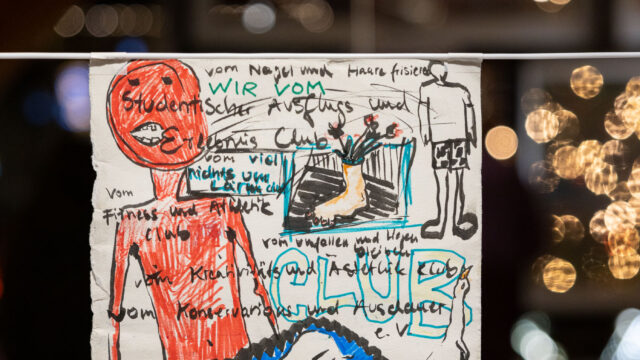 vom Nagel und Haare frisieren
WIR VOM
Studentischer Ausflugs und
Erlebnis Club
vom viel
nichts und
Lärm club
vom
Fitness und Athletik
Club
vom umfallen und liegen
bleiben
vom Kreativitäts und Ästhetik Club
CLUB
vom Konservations und Auschauer
e.V